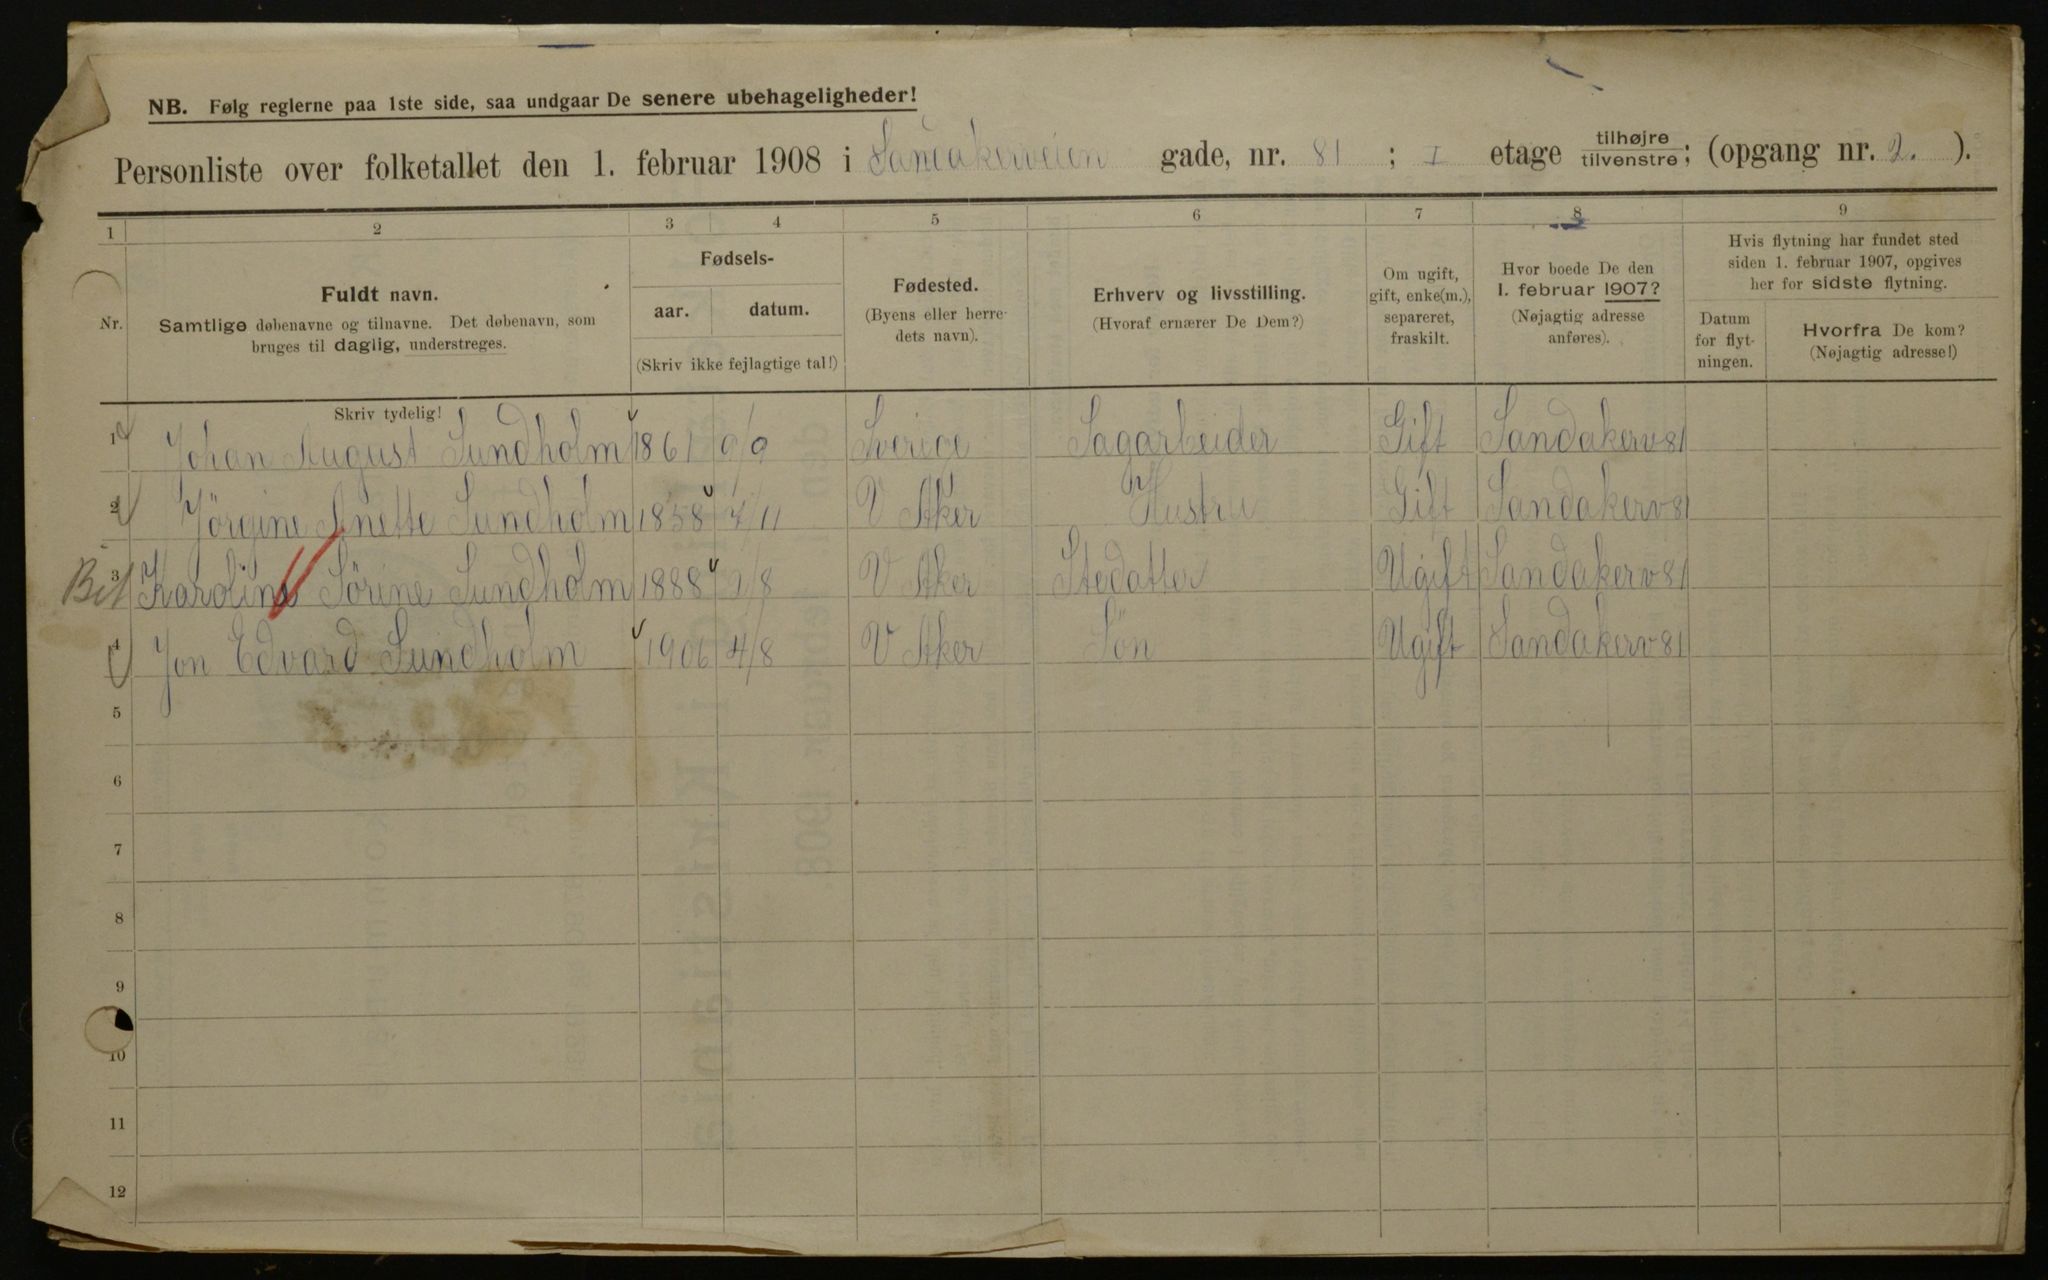 NB. Følg reglerne paa 1ste side, saa undgaar De senere ubehageligheder!
Personliste over folketallet den 1. februar 1908 i Sandakerveien gade, nr. 81 ; I etage tilhøjre tilvenstre; (opgang nr. 2. ).
1 2 3 4 5 6 7 8 9
Nr.
Fuldt navn.
Samtlige døbenavne og tilnavne. Det døbenavn, som
bruges til daglig, understreges.
Fødsels-
aar. datum.
(Skriv ikke fejlagtige tal!)
Fødested.
(Byens eller herre-
dets navn).
Erhverv og livsstilling.
(Hvoraf ernærer De Dem?)
Om ugift,
gift, enke(m.),
separeret,
fraskilt.
Hvor boede De den
1. februar 1907?
(Nøjagtig adresse
anføres).
Hvis flytning har fundet sted
siden 1. februar 1907, opgives
her for sidste flytning.
Datum
for flyt-
ningen.
Hvorfra De kom?
(Nøjagtig adresse!)
Skriv tydelig!
1 Johan August Sundholm 1861 9/9 Sverige Sagarbeider Gift Sandakerv 81
2 Jörgine Anette Sundholm 1858 4/11 V Aker Hustru Gift Sandakerv 81
3 Karoline Sörine Sundholm 1888 2/8 V Aker Stedatter Ugift Sandakerv 81
4 Jon Edvard Sundholm 1906 4/8 V Aker Sön Ugift Sandakerv 81
5
6
7
8
9
10
11
12